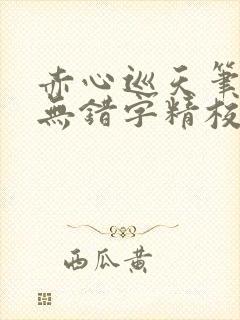 赤心巡天筆
無錯字精校
西瓜黄